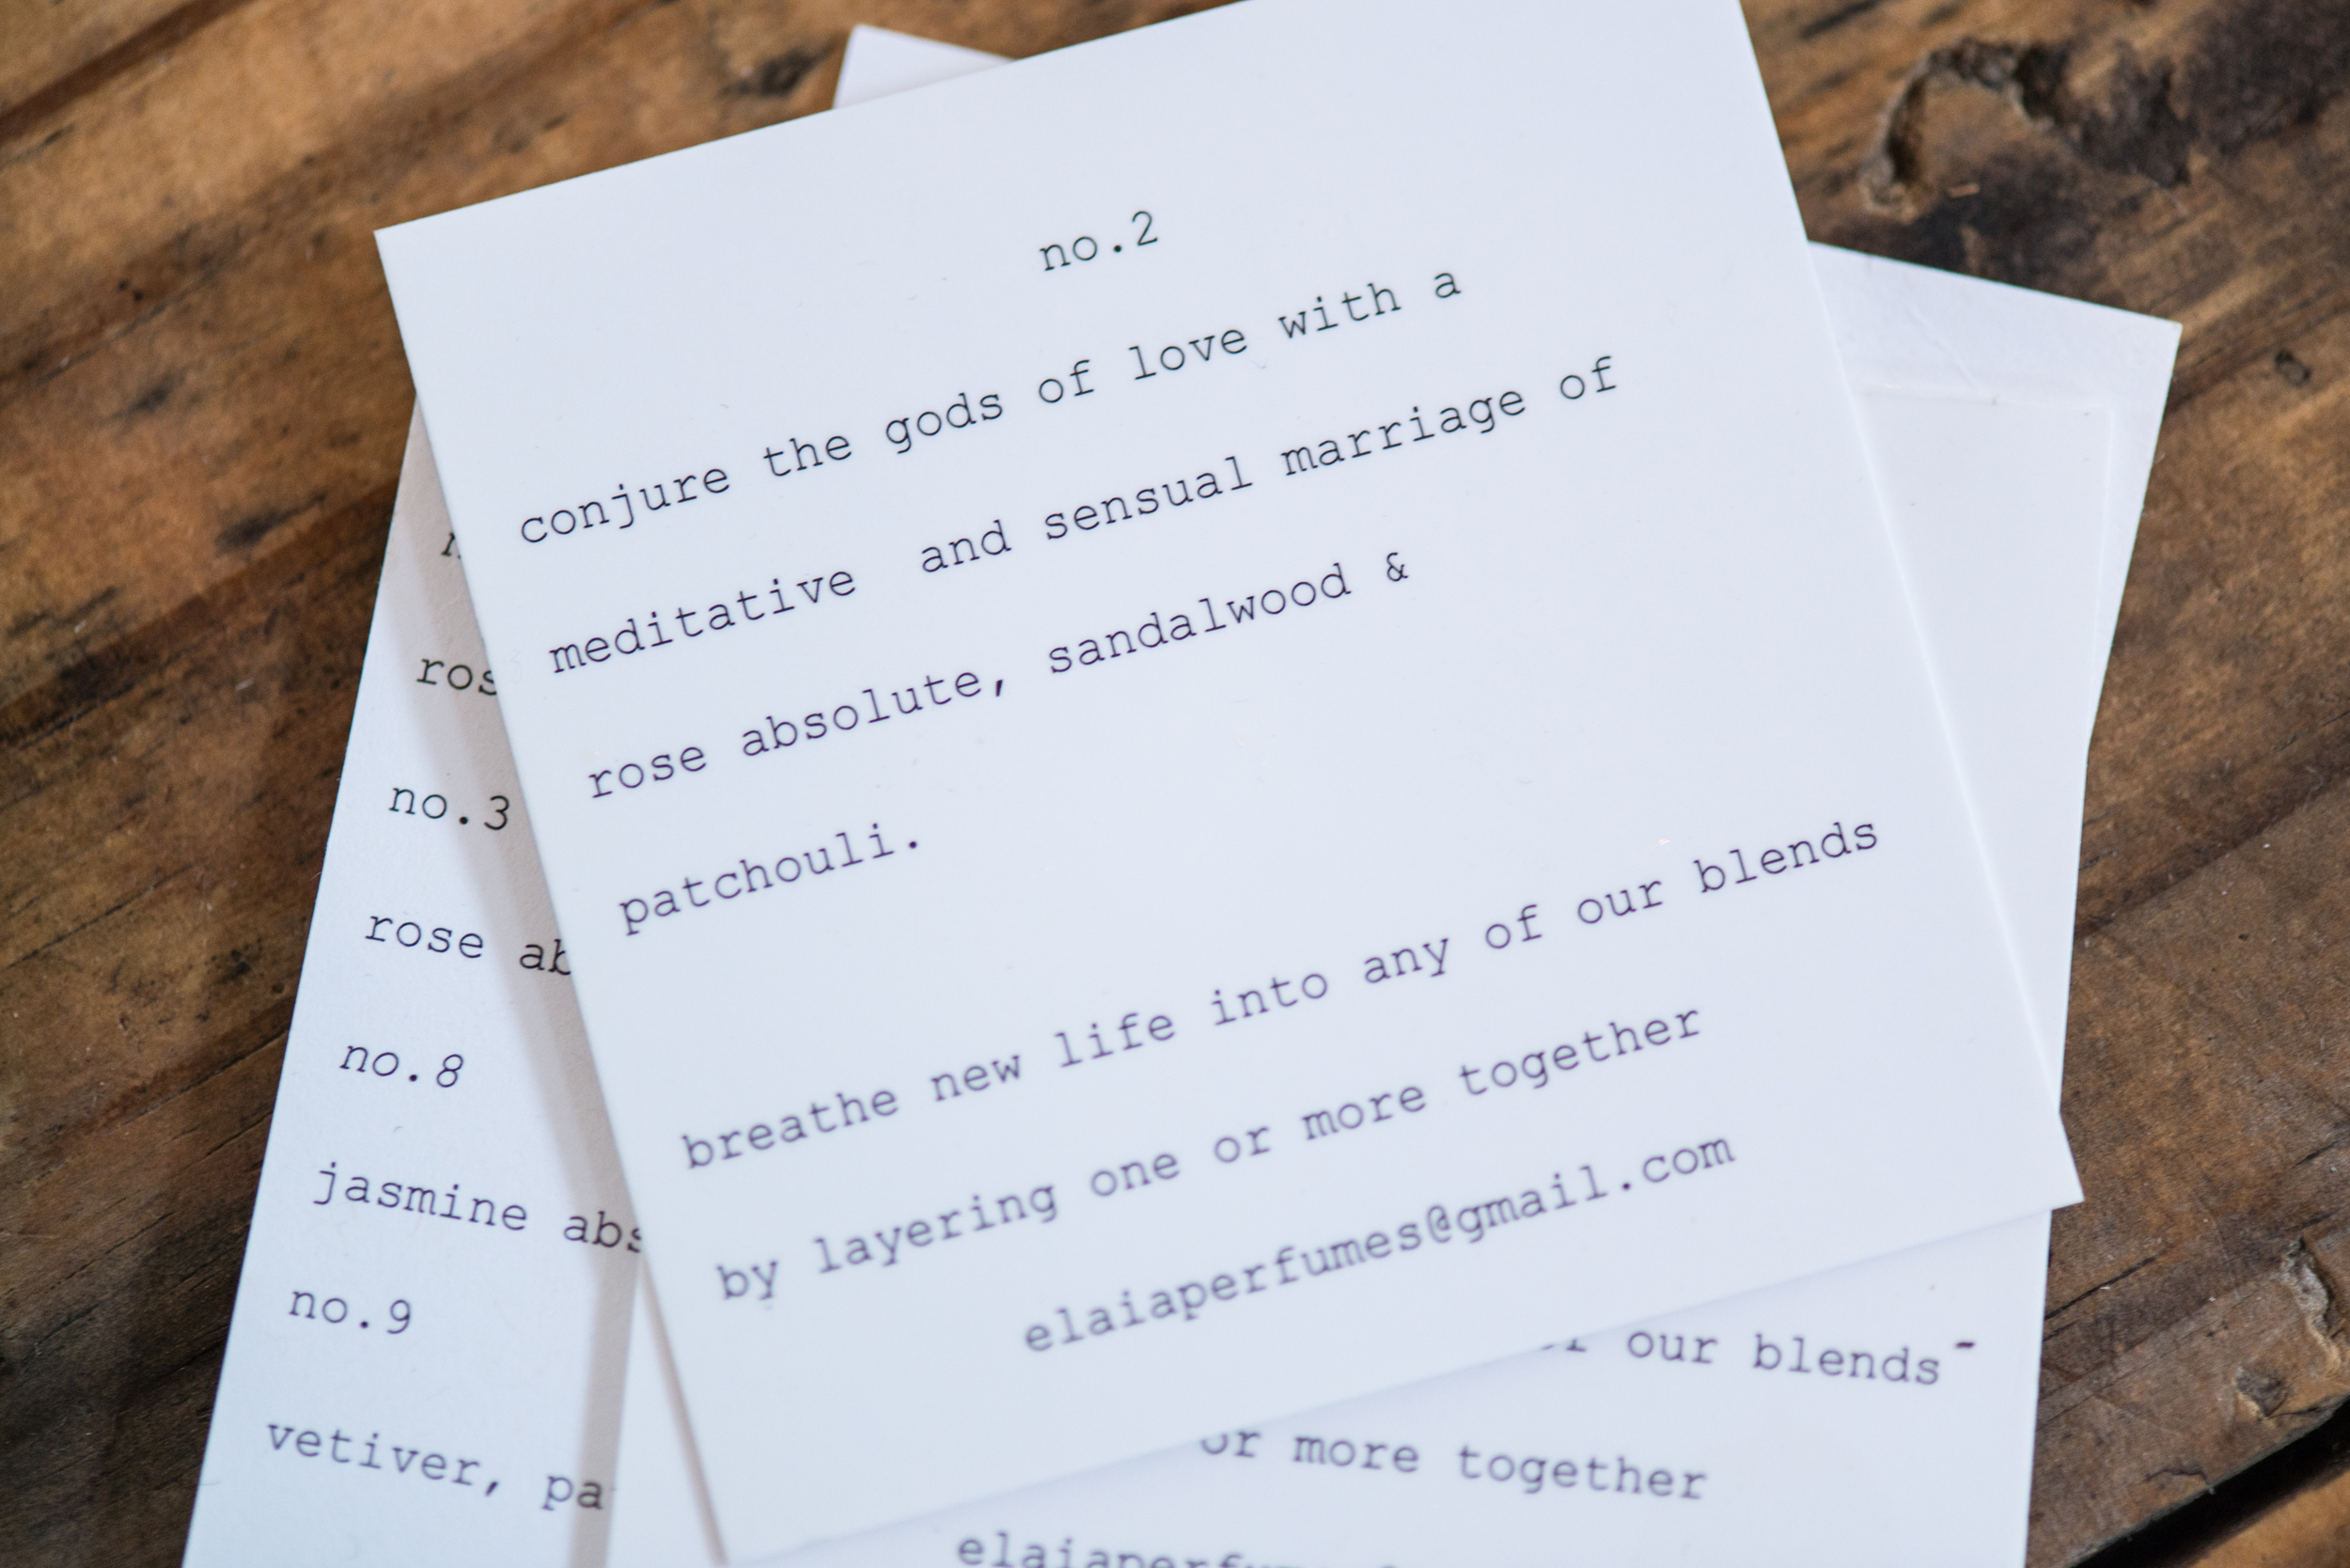 no.2
conjure the gods of love with a
meditative and sensual marriage of
rose absolute, sandalwood &
patchouli.
breathe new life into any of our blends
by layering one or more together
elaiaperfumes@gmail.com
no.3
rose
no.8
jasmine
no.9
vetiver,
our blends
or more together